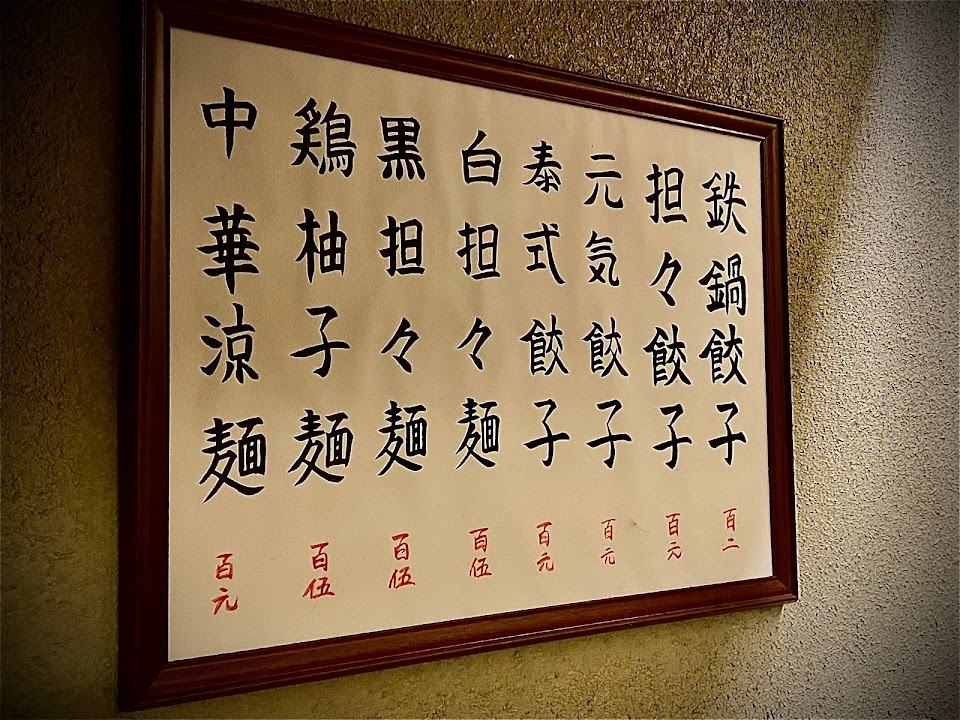 鉄鍋餃子 百二
担々餃子 百元
元気餃子 百元
泰式餃子 百元
白担々麺 百伍
黒担々麺 百伍
鶏柚子麺 百伍
中華涼麺 百元